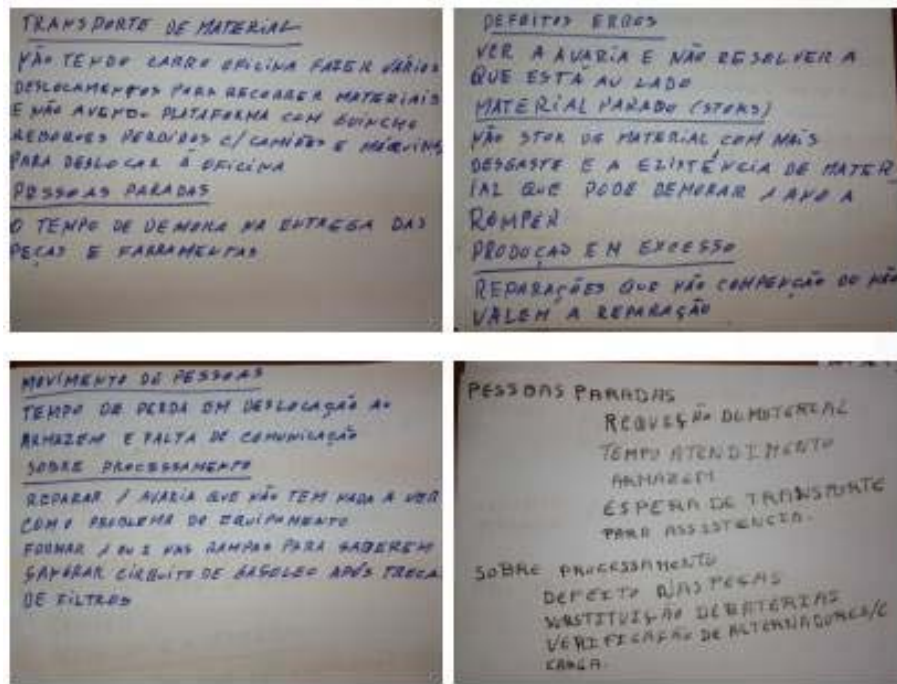 TRANSPORTE DE MATERIAL
NÃO TENDO CARRO OFICINA FAZER VÁRIOS
DESLOCAMENTOS PARA RECORRER MATERIAIS
E NÃO AVENDO PLATAFORMA COM GUINCHO
REBOQUES PERDIDOS C/ CAMIÕES E MÁQUINAS
PARA DESLOCAR Á OFICINA
PESSOAS PARADAS
O TEMPO DE DEMORA NA ENTREGA DAS
PEÇAS E FARRAMENTAS
DEFEITOS ERROS
VER A AVARIA E NÃO RESOLVER A
QUE ESTÁ AU LADO
MATERIAL PARADO (STOKS)
NÃO STOK DE MATERIAL COM MAIS
DESGASTE E A EZISTÊNCIA DE MATER
IAL QUE PODE DEMORAR 1 ANO A
ROMPER
PRODUÇÃO EM EXCESSO
REPARAÇÕES QUE NÃO COMPENÇÃO OU NÃO
VALEM A REPARAÇÃO
MOVIMENTO DE PESSOAS
TEMPO DE PERDA EM DESLOCAÇÃO AO
ARMAZEM E FALTA DE COMUNICAÇÃO
SOBRE PROCESSAMENTO
REPARAR 1 AVARIA QUE NÃO TEM NADA A VER
COM O PROBLEMA DO EQUIPAMENTO
FORMAR 1 OU 2 NAS RAMPAS PARA SABEREM
SANGRAR CIRQUITO DE GASOLEO APÓS TROCA
DE FILTROS
PESSOAS PARADAS
REQUEÇÃO DE MATERIAL
TEMPO ATENDIMENTO
ARMAZEM
ESPERA DE TRANSPORTE
PARA ASSISTENCIA.
SOBRE PROCESSAMENTO
DEFEITO NAS PEÇAS
SUBSTITUIÇÃO DE BATERIAS
VERIFICAÇÃO DE ALTERNADORES/C
CARGA.